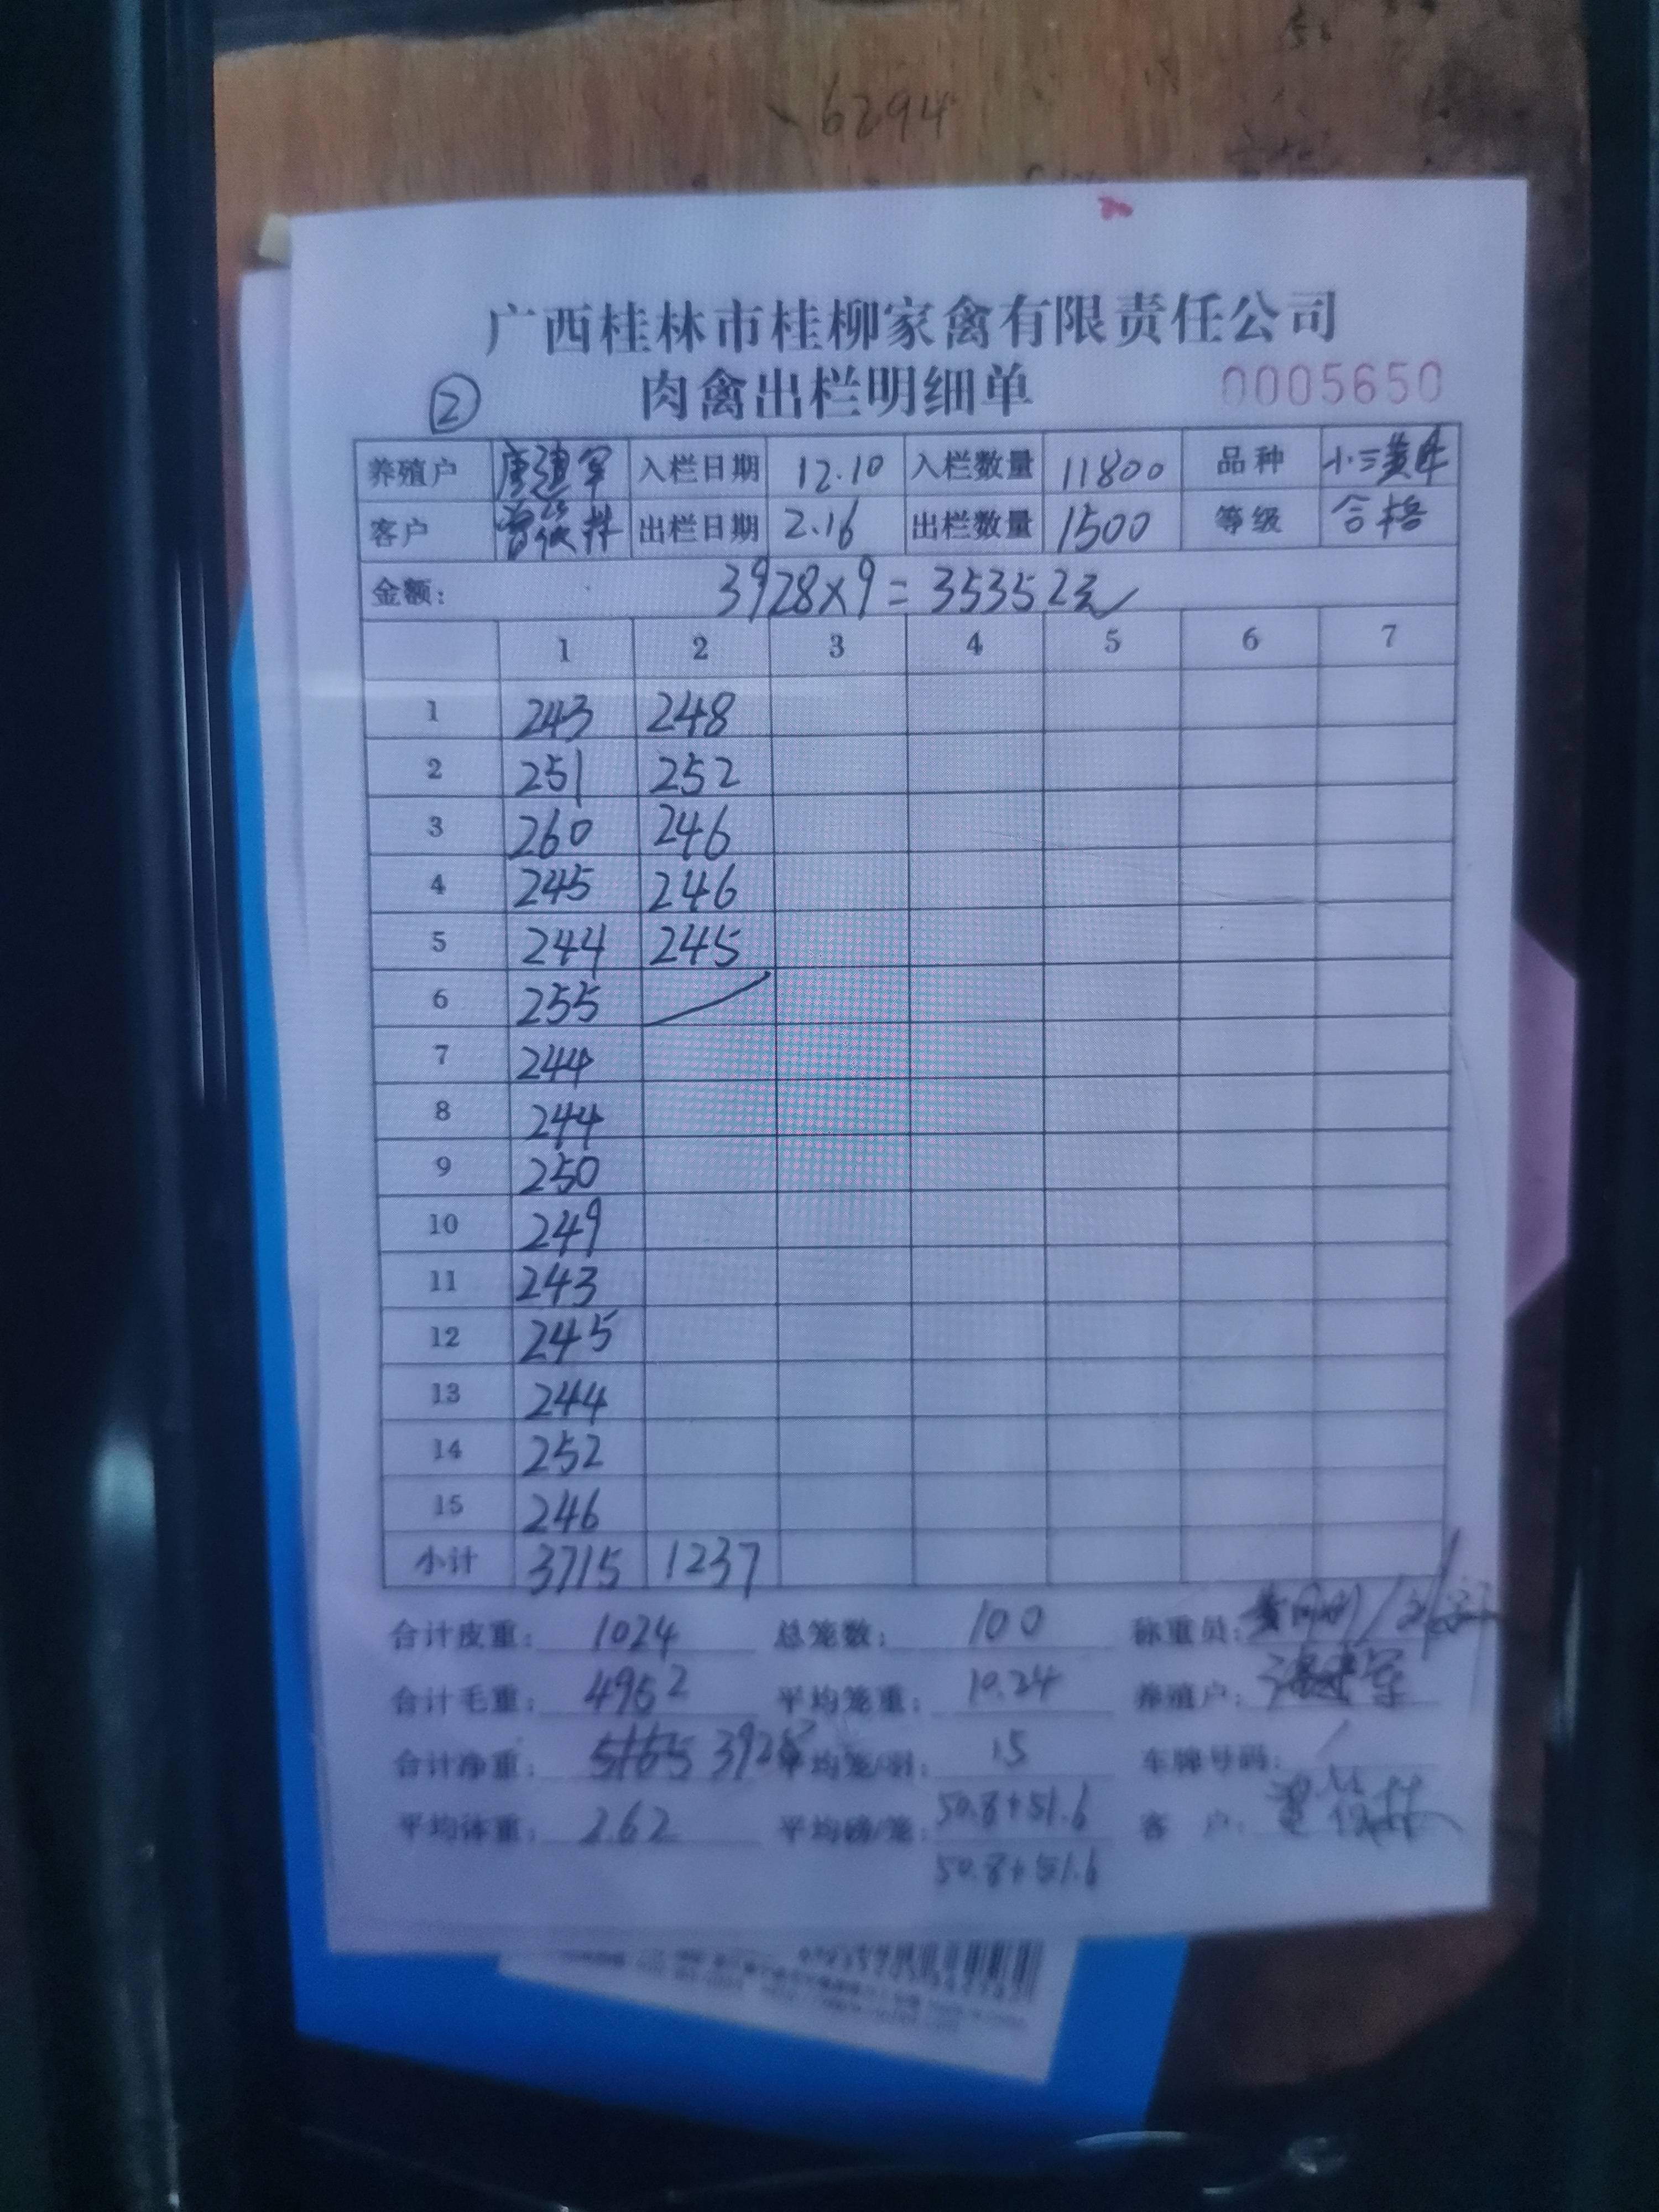 6294
广西桂林市桂柳家禽有限责任公司
② 肉禽出栏明细单 0005650
养殖户 唐建军 入栏日期 12.10 入栏数量 11800 品种 小三黄
客户 出栏日期 2.16 出栏数量 1500 等级 合格
金额: 3928×9=35352元
1 2 3 4 5 6 7
1 243 248
2 251 252
3 260 246
4 245 246
5 244 245
6 255
7 244
8 244
9 250
10 249
11 243
12 245
13 244
14 252
15 246
小计 3715 1237
合计皮重: 1024 总笼数: 100 称重员:
合计毛重: 4952 平均笼重: 10.24 养殖户:
合计净重: 3928 平均笼/羽: 15 车牌号码: /
平均体重: 2.62 平均磅/笼: 50.8+51.6 客户:
50.8+51.6